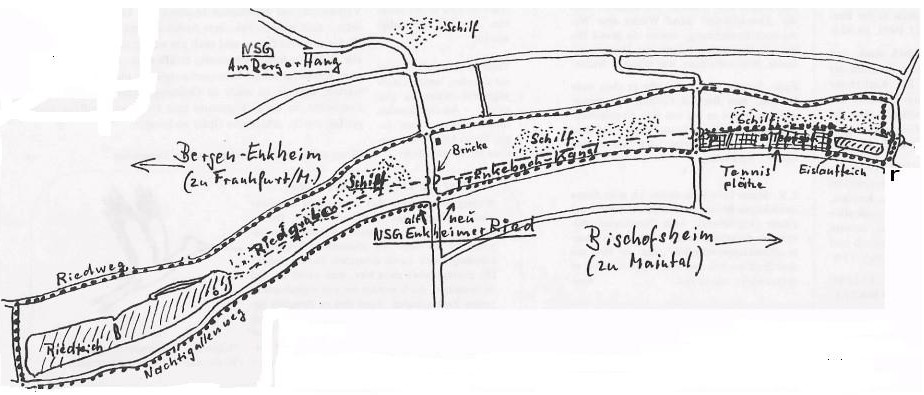 Schilf
NSG
Am Berger Hang
Bergen-Enkheim
(zu Frankfurt/M.)
Brücke
Schilf
Schilf
Schilf
Riedgraben
alt
neu
NSG Enkheimer Ried
Tennis
plätze
Eislaufteich
r
Bischofsheim
(zu Maintal)
Riedweg
Riedteich
Nachtigallenweg